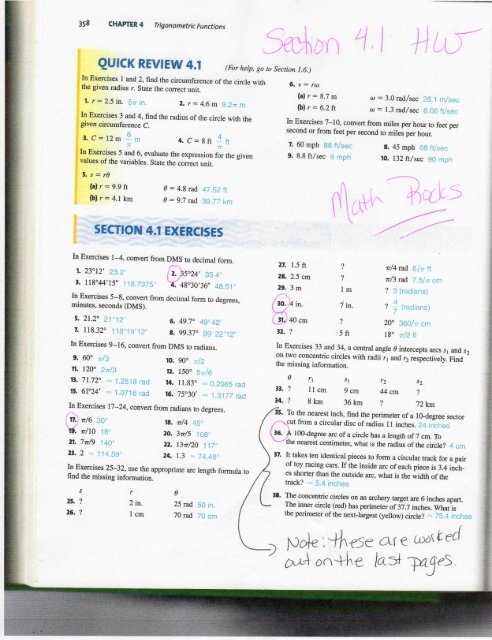 358 CHAPTER 4 Trigonometric Functions
Section 4.1 HW
QUICK REVIEW 4.1 (For help, go to Section 1.6.)
In Exercises 1 and 2, find the circumference of the circle with
the given radius r. State the correct unit.
1. r = 2.5 in. 5π in. 2. r = 4.6 m 9.2π m
In Exercises 3 and 4, find the radius of the circle with the
given circumference C.
3. C = 12 m 6/π m 4. C = 8 ft 4/π ft
In Exercises 5 and 6, evaluate the expression for the given
values of the variables. State the correct unit.
5. s = rθ
(a) r = 9.9 ft θ = 4.8 rad 47.52 ft
(b) r = 4.1 km θ = 9.7 rad 39.77 km
6. v = rω
(a) r = 8.7 m ω = 3.0 rad/sec 26.1 m/sec
(b) r = 6.2 ft ω = 1.3 rad/sec 8.06 ft/sec
In Exercises 7–10, convert from miles per hour to feet per
second or from feet per second to miles per hour.
7. 60 mph 88 ft/sec 8. 45 mph 66 ft/sec
9. 8.8 ft/sec 6 mph 10. 132 ft/sec 90 mph
Math Rocks
SECTION 4.1 EXERCISES
In Exercises 1–4, convert from DMS to decimal form.
1. 23°12' 23.2° 2. 35°24' 35.4°
3. 118°44'15" 118.7375° 4. 48°30'36" 48.51°
In Exercises 5–8, convert from decimal form to degrees,
minutes, seconds (DMS).
5. 21.2° 21°12' 6. 49.7° 49°42'
7. 118.32° 118°19'12" 8. 99.37° 99°22'12"
In Exercises 9–16, convert from DMS to radians.
9. 60° π/3 10. 90° π/2
11. 120° 2π/3 12. 150° 5π/6
13. 71.72° ≈ 1.2518 rad 14. 11.83° ≈ 0.2065 rad
15. 61°24' ≈ 1.0716 rad 16. 75°30' ≈ 1.3177 rad
In Exercises 17–24, convert from radians to degrees.
17. π/6 30° 18. π/4 45°
19. π/10 18° 20. 3π/5 108°
21. 7π/9 140° 22. 13π/20 117°
23. 2 ≈ 114.59° 24. 1.3 ≈ 74.48°
In Exercises 25–32, use the appropriate arc length formula to
find the missing information.
s r θ
25. ? 2 in. 25 rad 50 in.
26. ? 1 cm 70 rad 70 cm
27. 1.5 ft ? π/4 rad 6/π ft
28. 2.5 cm ? π/3 rad 7.5/π cm
29. 3 m 1 m ? 3 (radians)
30. 4 in. 7 in. ? 4/7 (radians)
31. 40 cm ? 20° 360/π cm
32. ? 5 ft 18° π/2 ft
In Exercises 33 and 34, a central angle θ intercepts arcs s1 and s2
on two concentric circles with radii r1 and r2 respectively. Find
the missing information.
θ r1 s1 r2 s2
33. ? 11 cm 9 cm 44 cm ?
34. ? 8 km 36 km ? 72 km
35. To the nearest inch, find the perimeter of a 10-degree sector
cut from a circular disc of radius 11 inches. 24 inches
36. A 100-degree arc of a circle has a length of 7 cm. To
the nearest centimeter, what is the radius of the circle? 4 cm
37. It takes ten identical pieces to form a circular track for a pair
of toy racing cars. If the inside arc of each piece is 3.4 inch-
es shorter than the outside arc, what is the width of the
track? ≈ 5.4 inches
38. The concentric circles on an archery target are 6 inches apart.
The inner circle (red) has perimeter of 37.7 inches. What is
the perimeter of the next-largest (yellow) circle? ≈ 75.4 inches
Note: these are worked
out on the last pages.